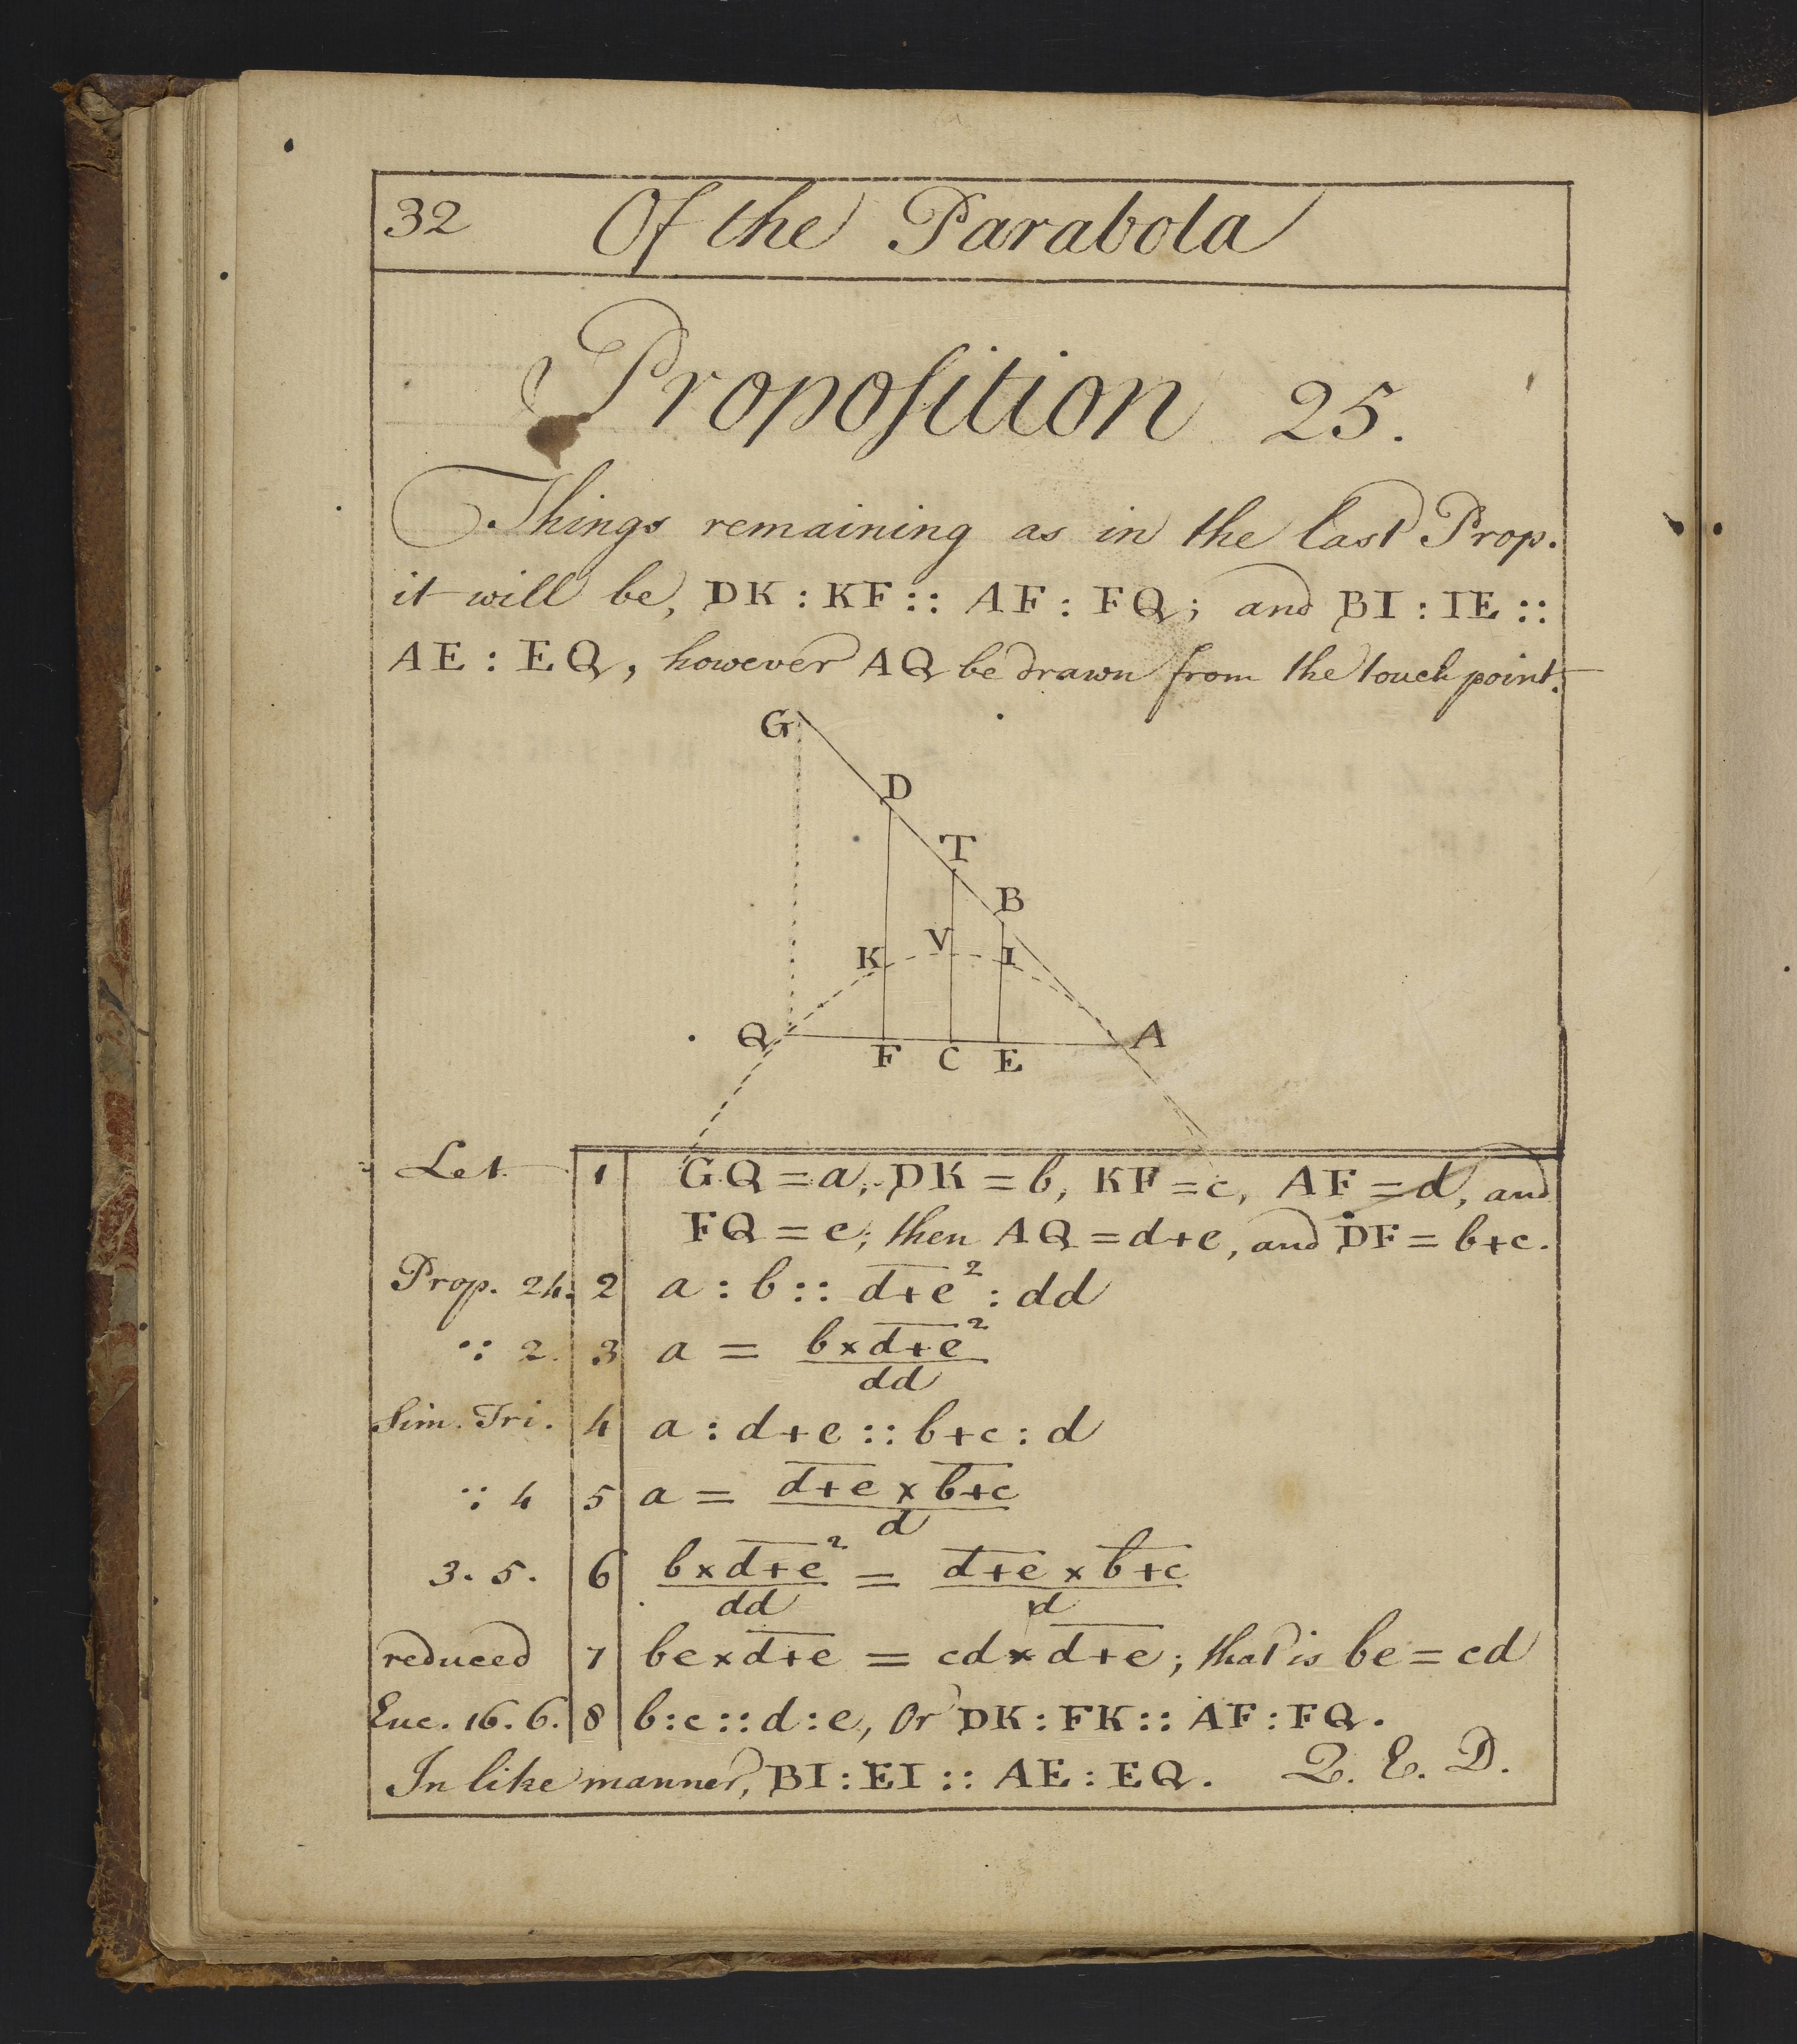 32 Of the Parabola
Propoſition 25.
Things remaining as in the last Prop.
it will be, DK : KF :: AF : FQ; and BI : IE ::
AE : EQ, however AQ be drawn from the touch point.
G
D
T
B
K V I
Q A
F C E
Let 1 GQ = a, DK = b, KF = c, AF = d, and
FQ = e; then AQ = d+e, and DF = b+c.
Prop. 24. 2 a : b :: d̅+̅e̅² : dd
∵ 2. 3 a = b×d̅+̅e̅²
dd
Sim. Tri. 4 a : d+e :: b+c : d
∵ 4 5 a = d̅+̅e̅ × b̅+̅c̅
d
3. 5. 6 b×d̅+̅e̅² = d̅+̅e̅ × b̅+̅c̅
dd d
reduced 7 be×d̅+̅e̅ = cd×d̅+̅e̅; that is be = cd
Euc. 16. 6. 8 b : c :: d : e, Or DK : FK :: AF : FQ.
In like manner, BI : EI :: AE : EQ. Q. E. D.